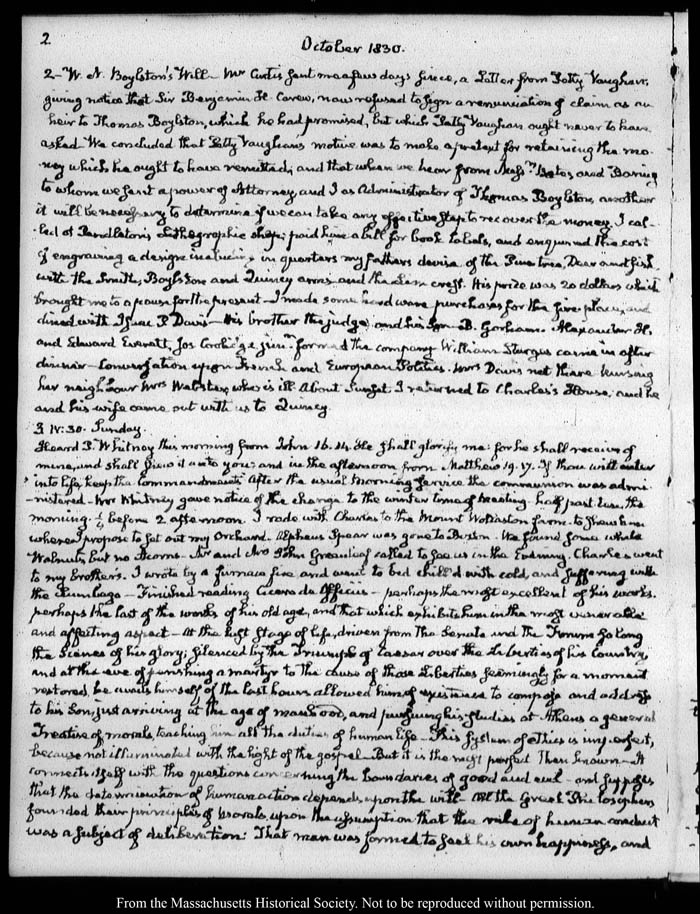 2
October 1830.
2 - W. N. Boylston's Will - Mr Curtis sent me a few days since, a Letter from Petty Vaughan,
giving notice that Sir Benjamin H. Carew, now refused to sign a renunciation of claim as an
heir to Thomas Boylston, which he had promised, but which Petty Vaughan ought never to have
asked. We concluded that Petty Vaughan's motive was to make a pretext for retaining the mo-
ney which he ought to have remitted; and that when we hear from Messrs. Bates and Baring
to whom we sent a power of Attorney, and I as Administrator of Thomas Boylston, another
it will be necessary to determine if we can take any effective step to recover the money. I cal-
led at Pendleton's Lithographic shop; paid him a bill for book labels, and enquired the cost
of engraving a design including in quarters my father's device of the Pine tree, Deer and fish
with the Smith, Boylston and Quincy arms and the crest. His price was 20 dollars which
brought me to a pause for the present - I made some hard ware purchases for the fire place, and
dined with Isaac P. Davis - His brother the judge, and his Son - B. Gorham - Alexander H.
and Edward Everett, Jos Coolidge junr. formed the company William Sturgis came in after
dinner - Conversation upon French and European Politics. Mrs Davis not there nursing
her neighbour Mrs Webster, who is ill. About Sunset I returned to Charles's House, and he
and his wife came out with us to Quincy.
3. IV:30. Sunday.
Heard P. Whitney this morning from John 16. 14. He shall glorify me: for he shall receive of
mine, and shall shew it unto you: and in the afternoon from Matthew 19. 17. If thou wilt enter
into life, keep the Commandments. After the usual morning service the communion was admi-
nistered - Mr Whitney gave notice of the change to the winter time of meeting. half past ten, the
morning. ½ before 2 afternoon. I rode with Charles to the Mount Wollaston farm to shew him
where I propose to set out my Orchard. Alpheus Spear was gone to Boston. We found some
Walnuts, but no Acorns. Mr and Mrs John Greenleaf called to see us in the Evening. Charles went
to my brother's. I wrote by a furnace fire and went to bed chill'd with cold, and suffering with
the Lumbago - Finished reading Cicero de Officiis - perhaps the most excellent of his works.
perhaps the last of the works of his old age, and that which exhibits him in the most venerable
and affecting aspect - At the last stage of life, driven from the Senate and the Forum so long
the Scenes of his glory; silenced by the Triumph of Caesar over the Liberties of his Country,
and at the eve of perishing a martyr to the cause of those Liberties seemingly for a moment
restored, he avails himself of the last hours allowed him of existence to compose and address
to his Son, just arriving at the age of manhood, and pursuing his studies at Athens a general
Treatise of morals, teaching him all the duties of human life - This System of ethics is imperfect,
because not illuminated with the light of the gospel - But it is the most perfect then known - It
connects itself with the questions concerning the boundaries of good and evil - and supposes
that the determination of human action depends upon the will - All the Greek Philosophers
founded their principles of morals, upon the assumption that the rule of human conduct
was a subject of deliberation: That man was formed to seek his own happiness, and
From the Massachusetts Historical Society. Not to be reproduced without permission.